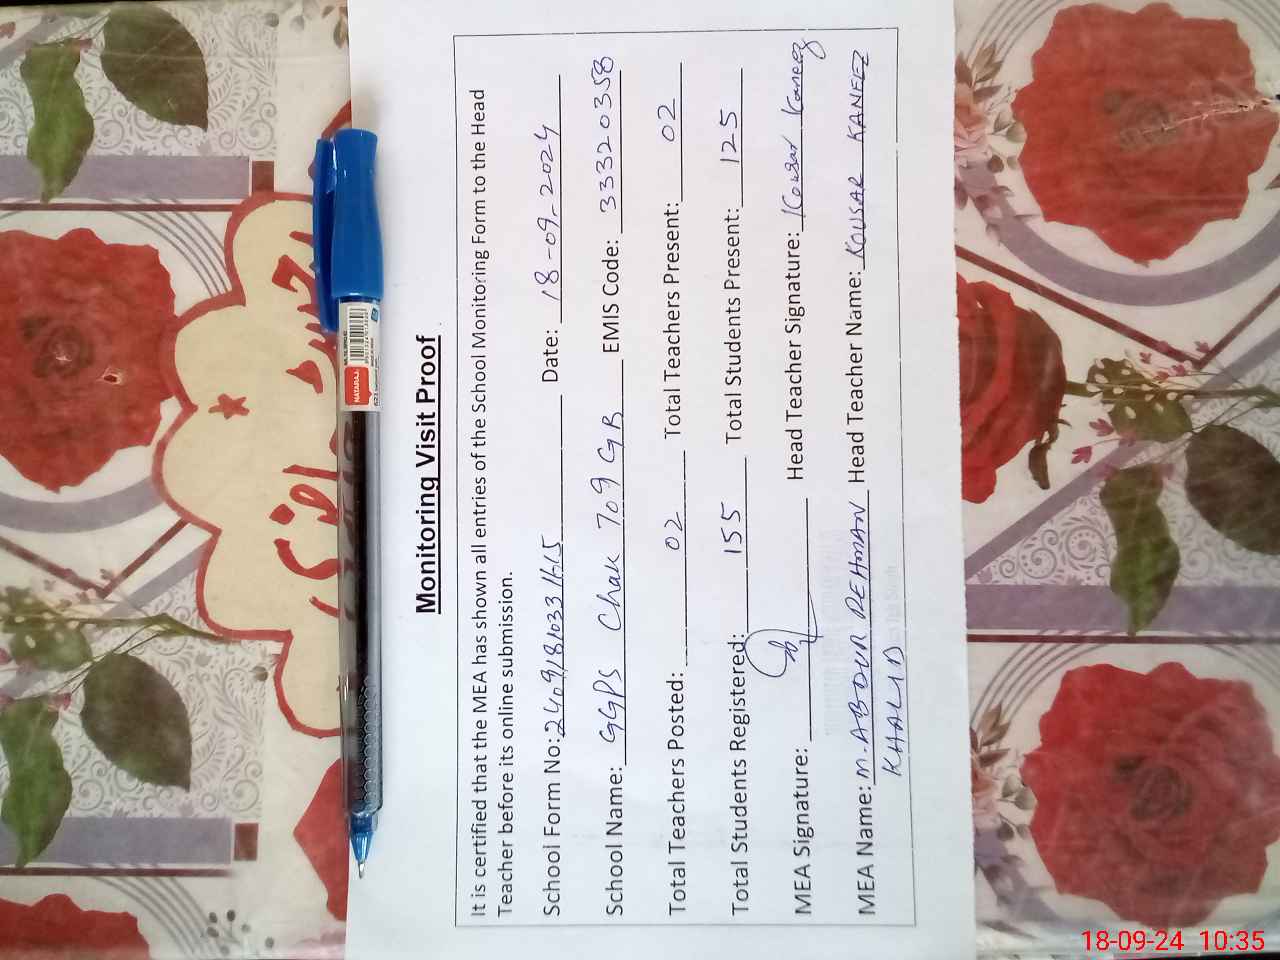 Monitoring Visit Proof
It is certified that the MEA has shown all entries of the School Monitoring Form to the Head
Teacher before its online submission.
School Form No: Date: 18-09-2024
School Name: GGPS Chak 709 GB EMIS Code: 33320358
Total Teachers Posted: 02 Total Teachers Present: 02
Total Students Registered: 155 Total Students Present: 125
MEA Signature: Head Teacher Signature: Kousar Kaneez
MEA Name: M. ABDUR REHMAN Head Teacher Name: KOUSAR KANEEZ
KHALID
NATARAJ
18-09-24 10:35